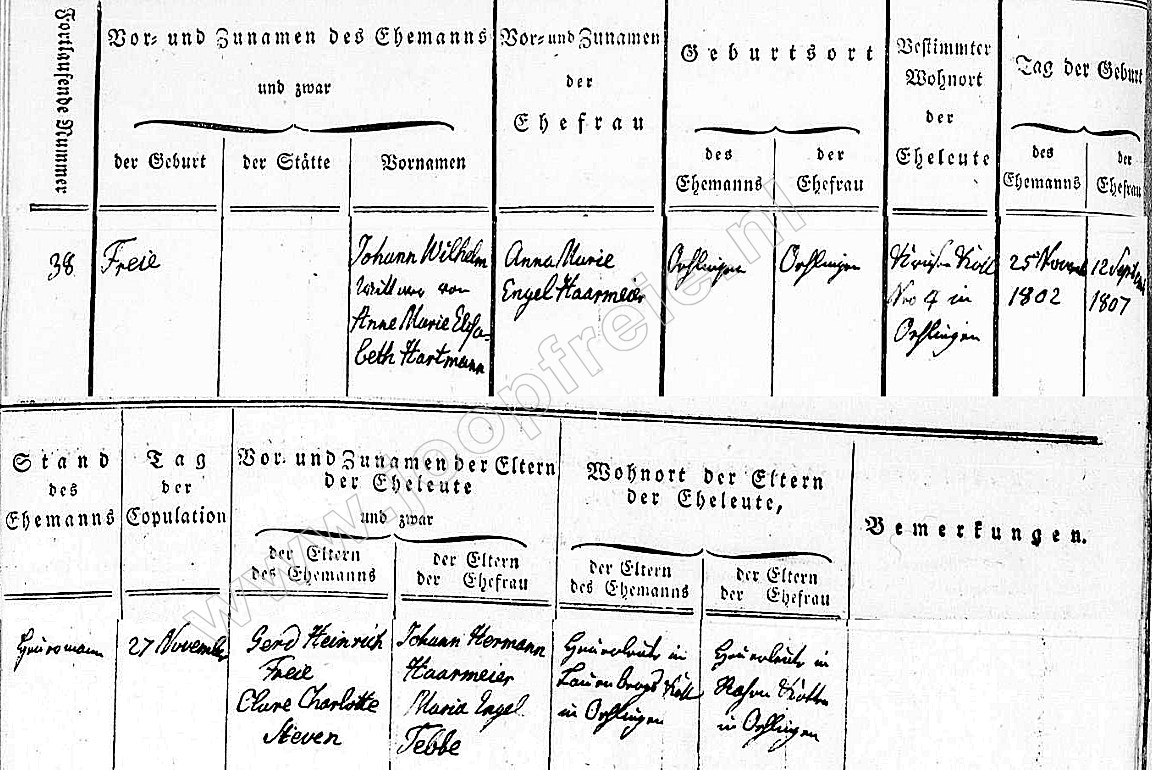 Fortlaufende Nummer
Vor- und Zunamen des Ehemanns
und zwar
der Geburt
der Stätte
Vornamen
Vor- und Zunamen
der
Ehefrau
Geburtsort
des
Ehemanns
der
Ehefrau
Bestimmter
Wohnort
der
Eheleute
Tag der Geburt
des
Ehemanns
der
Ehefrau
38
Freie
Johann Wilhelm
Wittwer von
Anne Marie Elisa-
beth Hartmann
Anna Marie
Engel Haarmeier
Oehlingen
Oehlingen
Kott
Nro 4 in
Oehlingen
25 Novemb
1802
12 Septemb
1807
Stand
des
Ehemanns
Tag
der
Copulation
Vor- und Zunamen der Eltern
der Eheleute
und zwar
der Eltern
des Ehemanns
der Eltern
der Ehefrau
Wohnort der Eltern
der Eheleute,
der Eltern
des Ehemanns
der Eltern
der Ehefrau
Bemerkungen.
Heuermann
27 November
Gerd Heinrich
Freie
Clare Charlotte
Steven
Johann Hermann
Haarmeier
Maria Engel
Tebbe
Heuerleute in
Kott
in Oehlingen
Heuerleute in
Kotten
in Oehlingen
www.joopfreie.nl